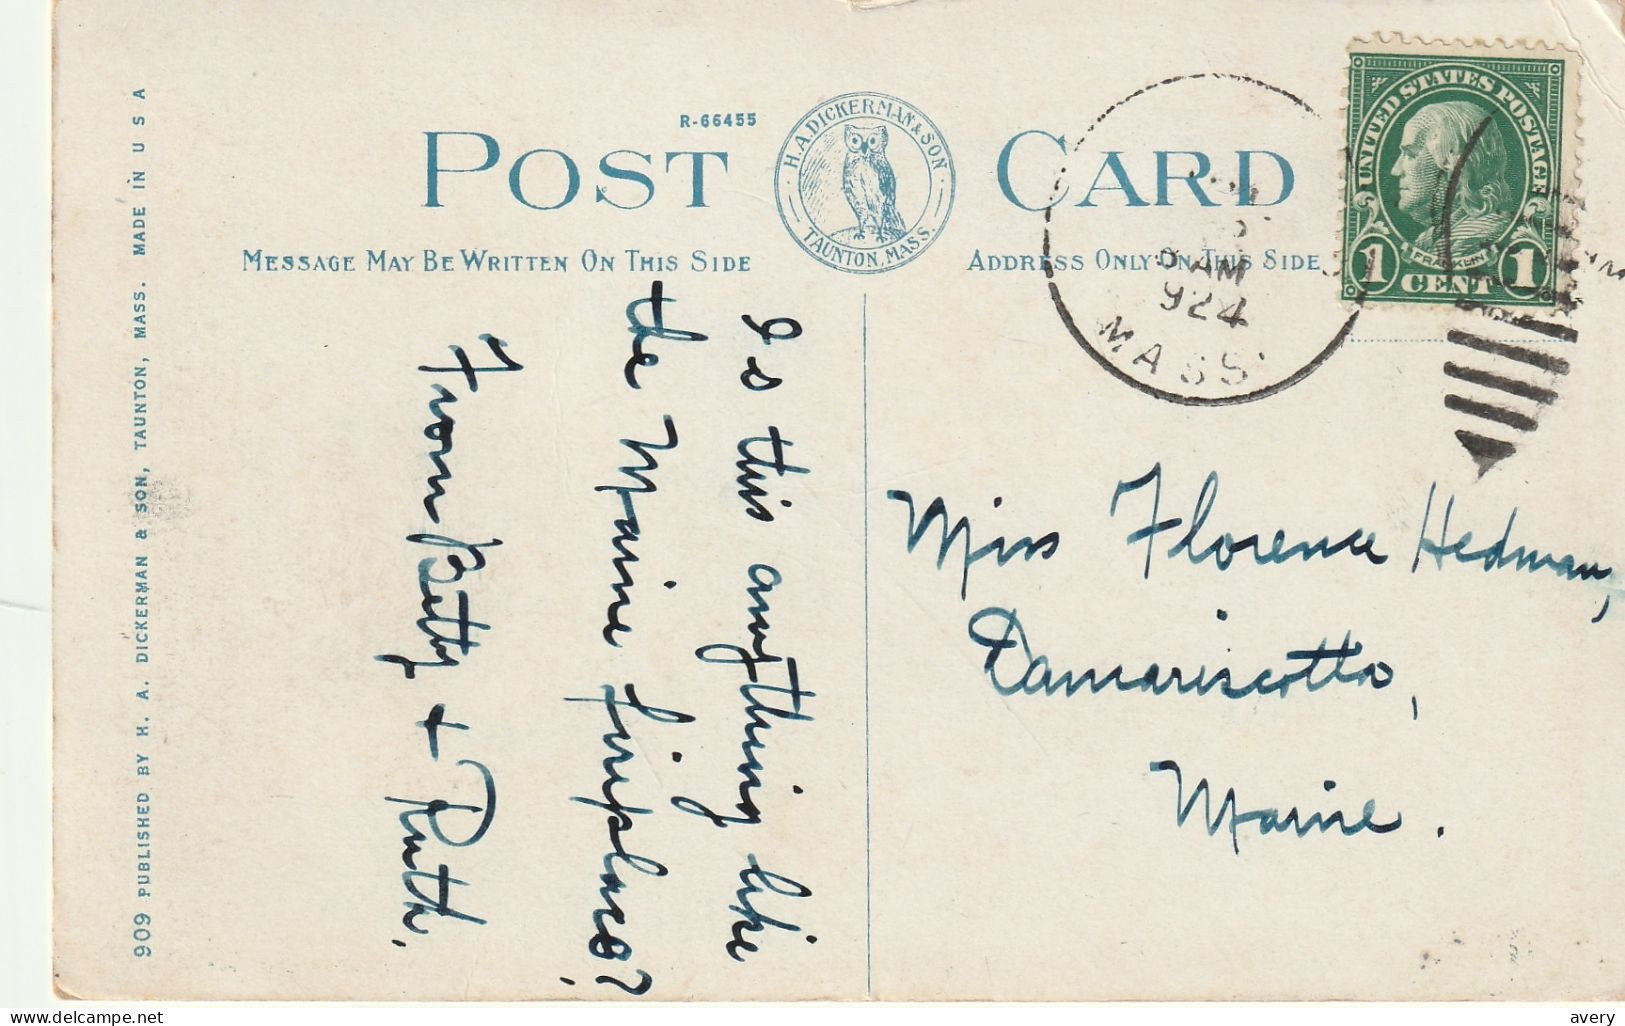 R-66455
POST CARD
H. A. DICKERMAN & SON
TAUNTON, MASS.
MESSAGE MAY BE WRITTEN ON THIS SIDE
ADDRESS ONLY ON THIS SIDE
AM
924
MASS.
UNITED STATES POSTAGE
FRANKLIN
1 CENT 1
Is this anything like
the Maine fireplaces?
From Betty + Ruth.
Miss Florence Hedman,
Damariscotta,
Maine.
909 PUBLISHED BY H. A. DICKERMAN & SON, TAUNTON, MASS. MADE IN U S A
delcampe.net
avery